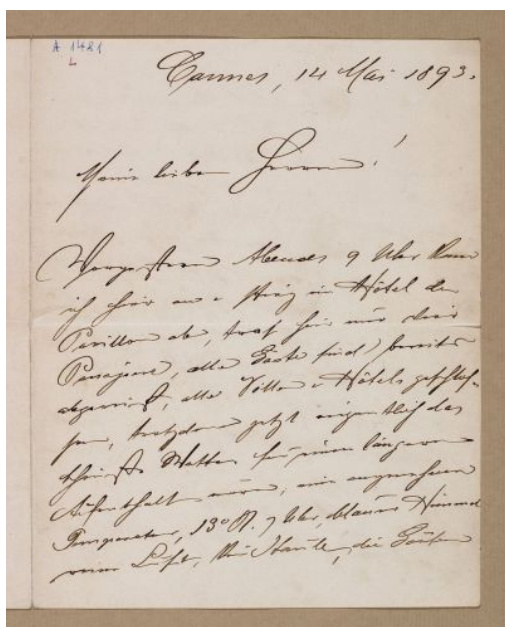 A 1421
L
Cannes, 14 Mai 1893.
Meine lieben Herren!
Vorgestern Abends 9 Uhr kam
ich hier an u. stieg im Hôtel du
Pavillon ab, traf hier nur drei
Passagiere, alle Gäste sind bereits
abgereist, alle Villen u. Hôtels geschlos-
sen, trotzdem jetzt eigentlich das
schönste Wetter für einen längeren
Aufenthalt wäre, eine angenehme
Temperatur, 13° R. 7 Uhr, blauer Himmel
reine Luft, kein Staub, die Gärten